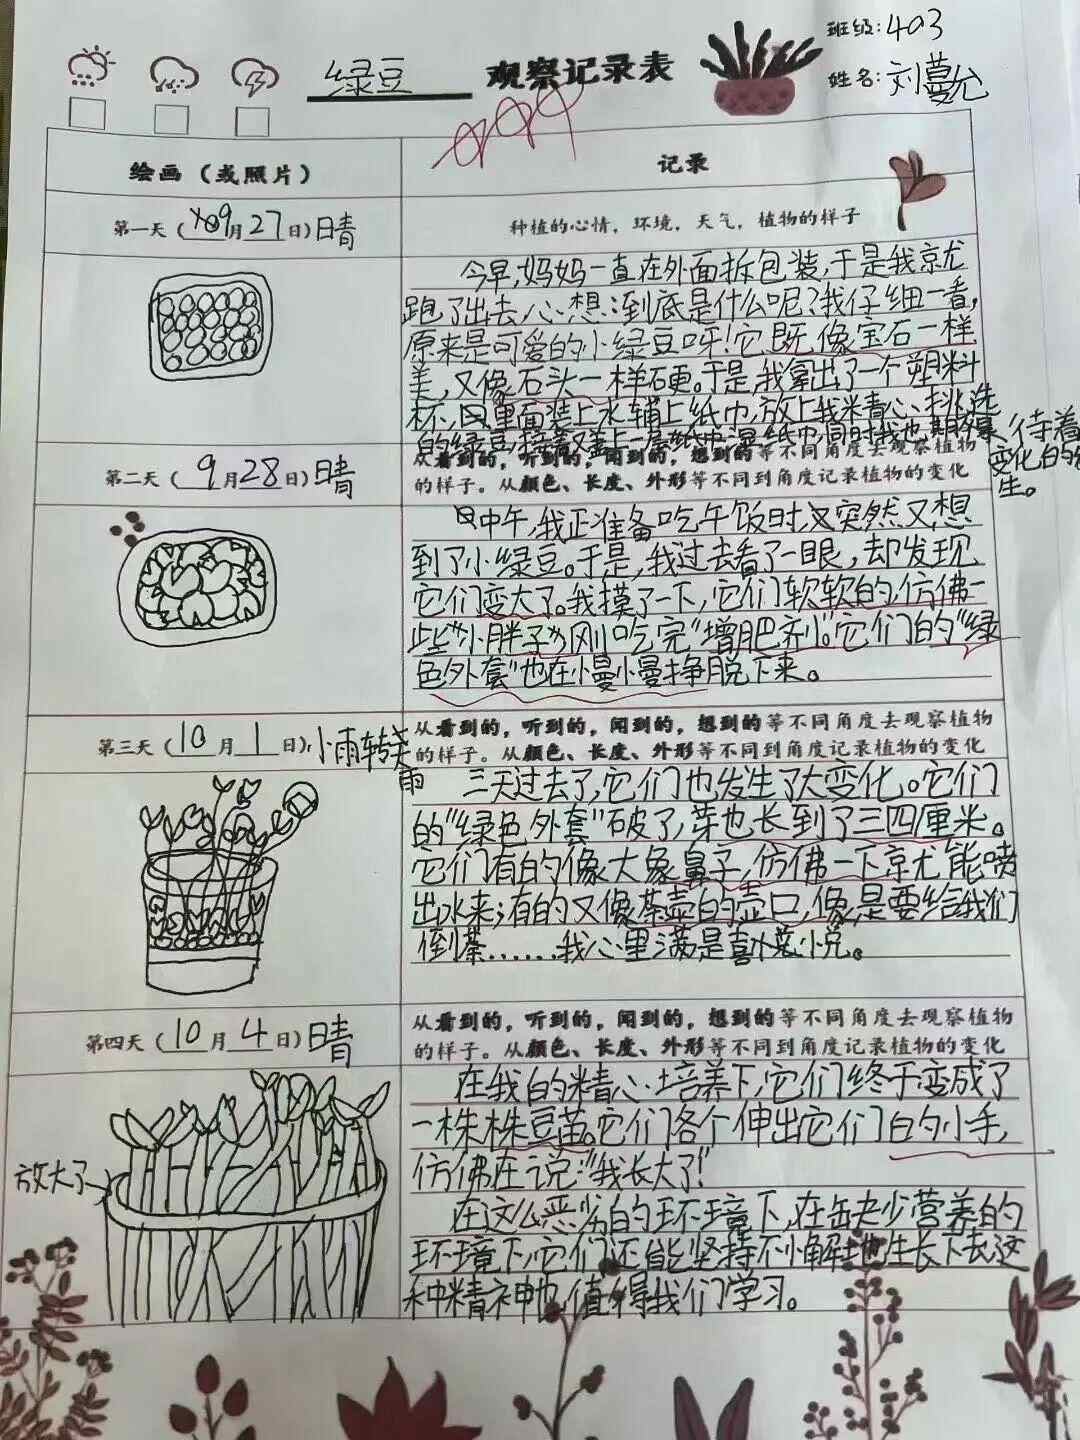 班级:403
绿豆 观察记录表
姓名:刘蔓允
绘画（或照片）
记录
第一天（09月27日）晴
种植的心情，环境，天气，植物的样子
今早,妈妈一直在外面拆包装,于是我就
跑了出去心想:到底是什么呢?我仔细一看,
原来是可爱的小绿豆呀!它既像宝石一样
美,又像石头一样硬。于是,我拿出了一个塑料
杯,里面装上水铺上纸巾,放上我精心挑选
的绿豆,接着又盖上一层纸巾湿纸巾,同时我也期待着
变化的
生。
第二天（9月28日）晴
从看到的，听到的，闻到的，想到的等不同角度去观察植物
的样子。从颜色、长度、外形等不同到角度记录植物的变化
中午,我正准备吃午饭时,又突然又想
到了小绿豆。于是,我过去看了一眼,却发现
它们变大了。我摸了一下,它们软软的,仿佛一
些“小胖子”刚吃完“增肥剂”。它们的“绿
色外套”也在慢慢挣脱下来。
第三天（10月1日）小雨转大
雨
从看到的，听到的，闻到的，想到的等不同角度去观察植物
的样子。从颜色、长度、外形等不同到角度记录植物的变化
三天过去了,它们也发生了大变化。它们
的“绿色外套”破了,芽也长到了三四厘米。
它们有的像大象鼻子,仿佛一下就能喷
出水来;有的又像茶壶的壶口,像是要给我们
倒茶......我心里满是喜悦。
第四天（10月4日）晴
从看到的，听到的，闻到的，想到的等不同角度去观察植物
的样子。从颜色、长度、外形等不同到角度记录植物的变化
放大了
在我的精心培养下,它们终于变成了
一株株豆苗。它们各个伸出它们白的小手,
仿佛在说:“我长大了!”
在这么恶劣的环境下,在缺少营养的
环境下,它们还能坚持不懈地生长下去,这
种精神也值得我们学习。